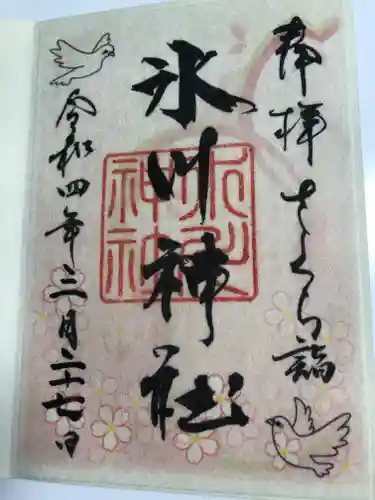 奉拝 さくら詣
氷川神社
氷川神社
令和四年三月二十七日